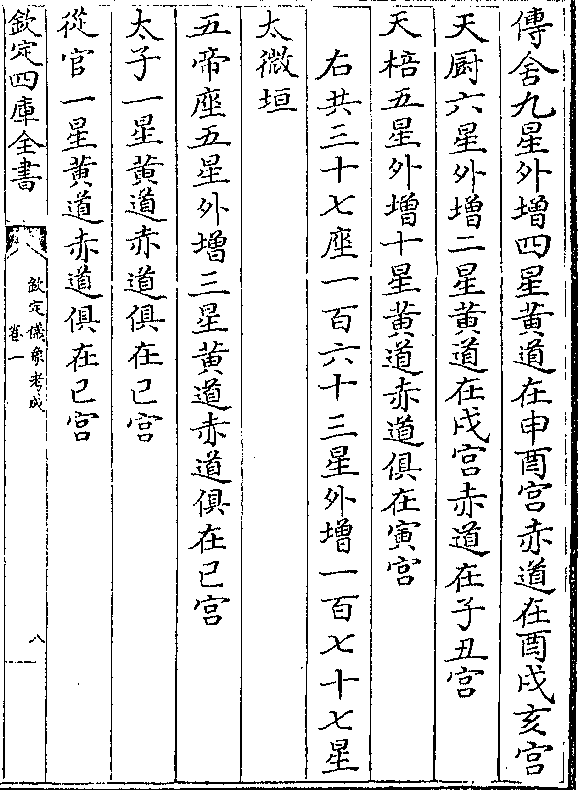 傳舍九星外增四星黄道在申酉宫赤道在酉戌亥宫
天厨六星外增二星黄道在戌宫赤道在子丑宫
天棓五星外增十星黄道赤道俱在寅宫
右共三十七座一百六十三星外增一百七十七星
太微垣
五帝座五星外增三星黄道赤道俱在巳宫
太子一星黄道赤道俱在巳宫
從官一星黄道赤道俱在巳宫
欽定四庫全書
欽定儀象考成
卷一
八